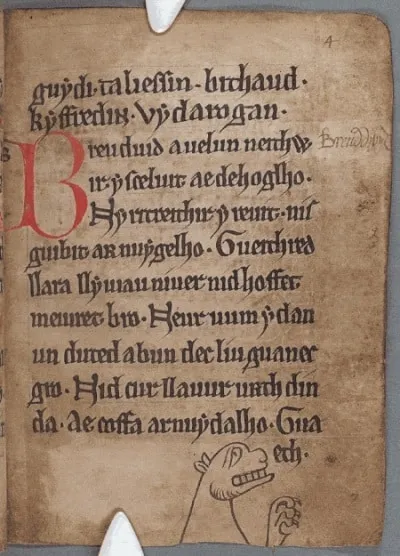 4
guydi. taliessin. bithaud.
kyffredin. vy darogan.
Breuduid a uelun neithw
ir. ys celuit ae dehoglho.
Ny ritreithir y reuit. nis
guibit ar nuy gelho. Gueithred
llara llyuiau niuer nid hoffet
meiuret bro. Neur uum y dan
un duted a bun dec liu guanec
gro. Nid cur llauur urth din
da. Ae coffa ar nuydalho. Gua
ech.